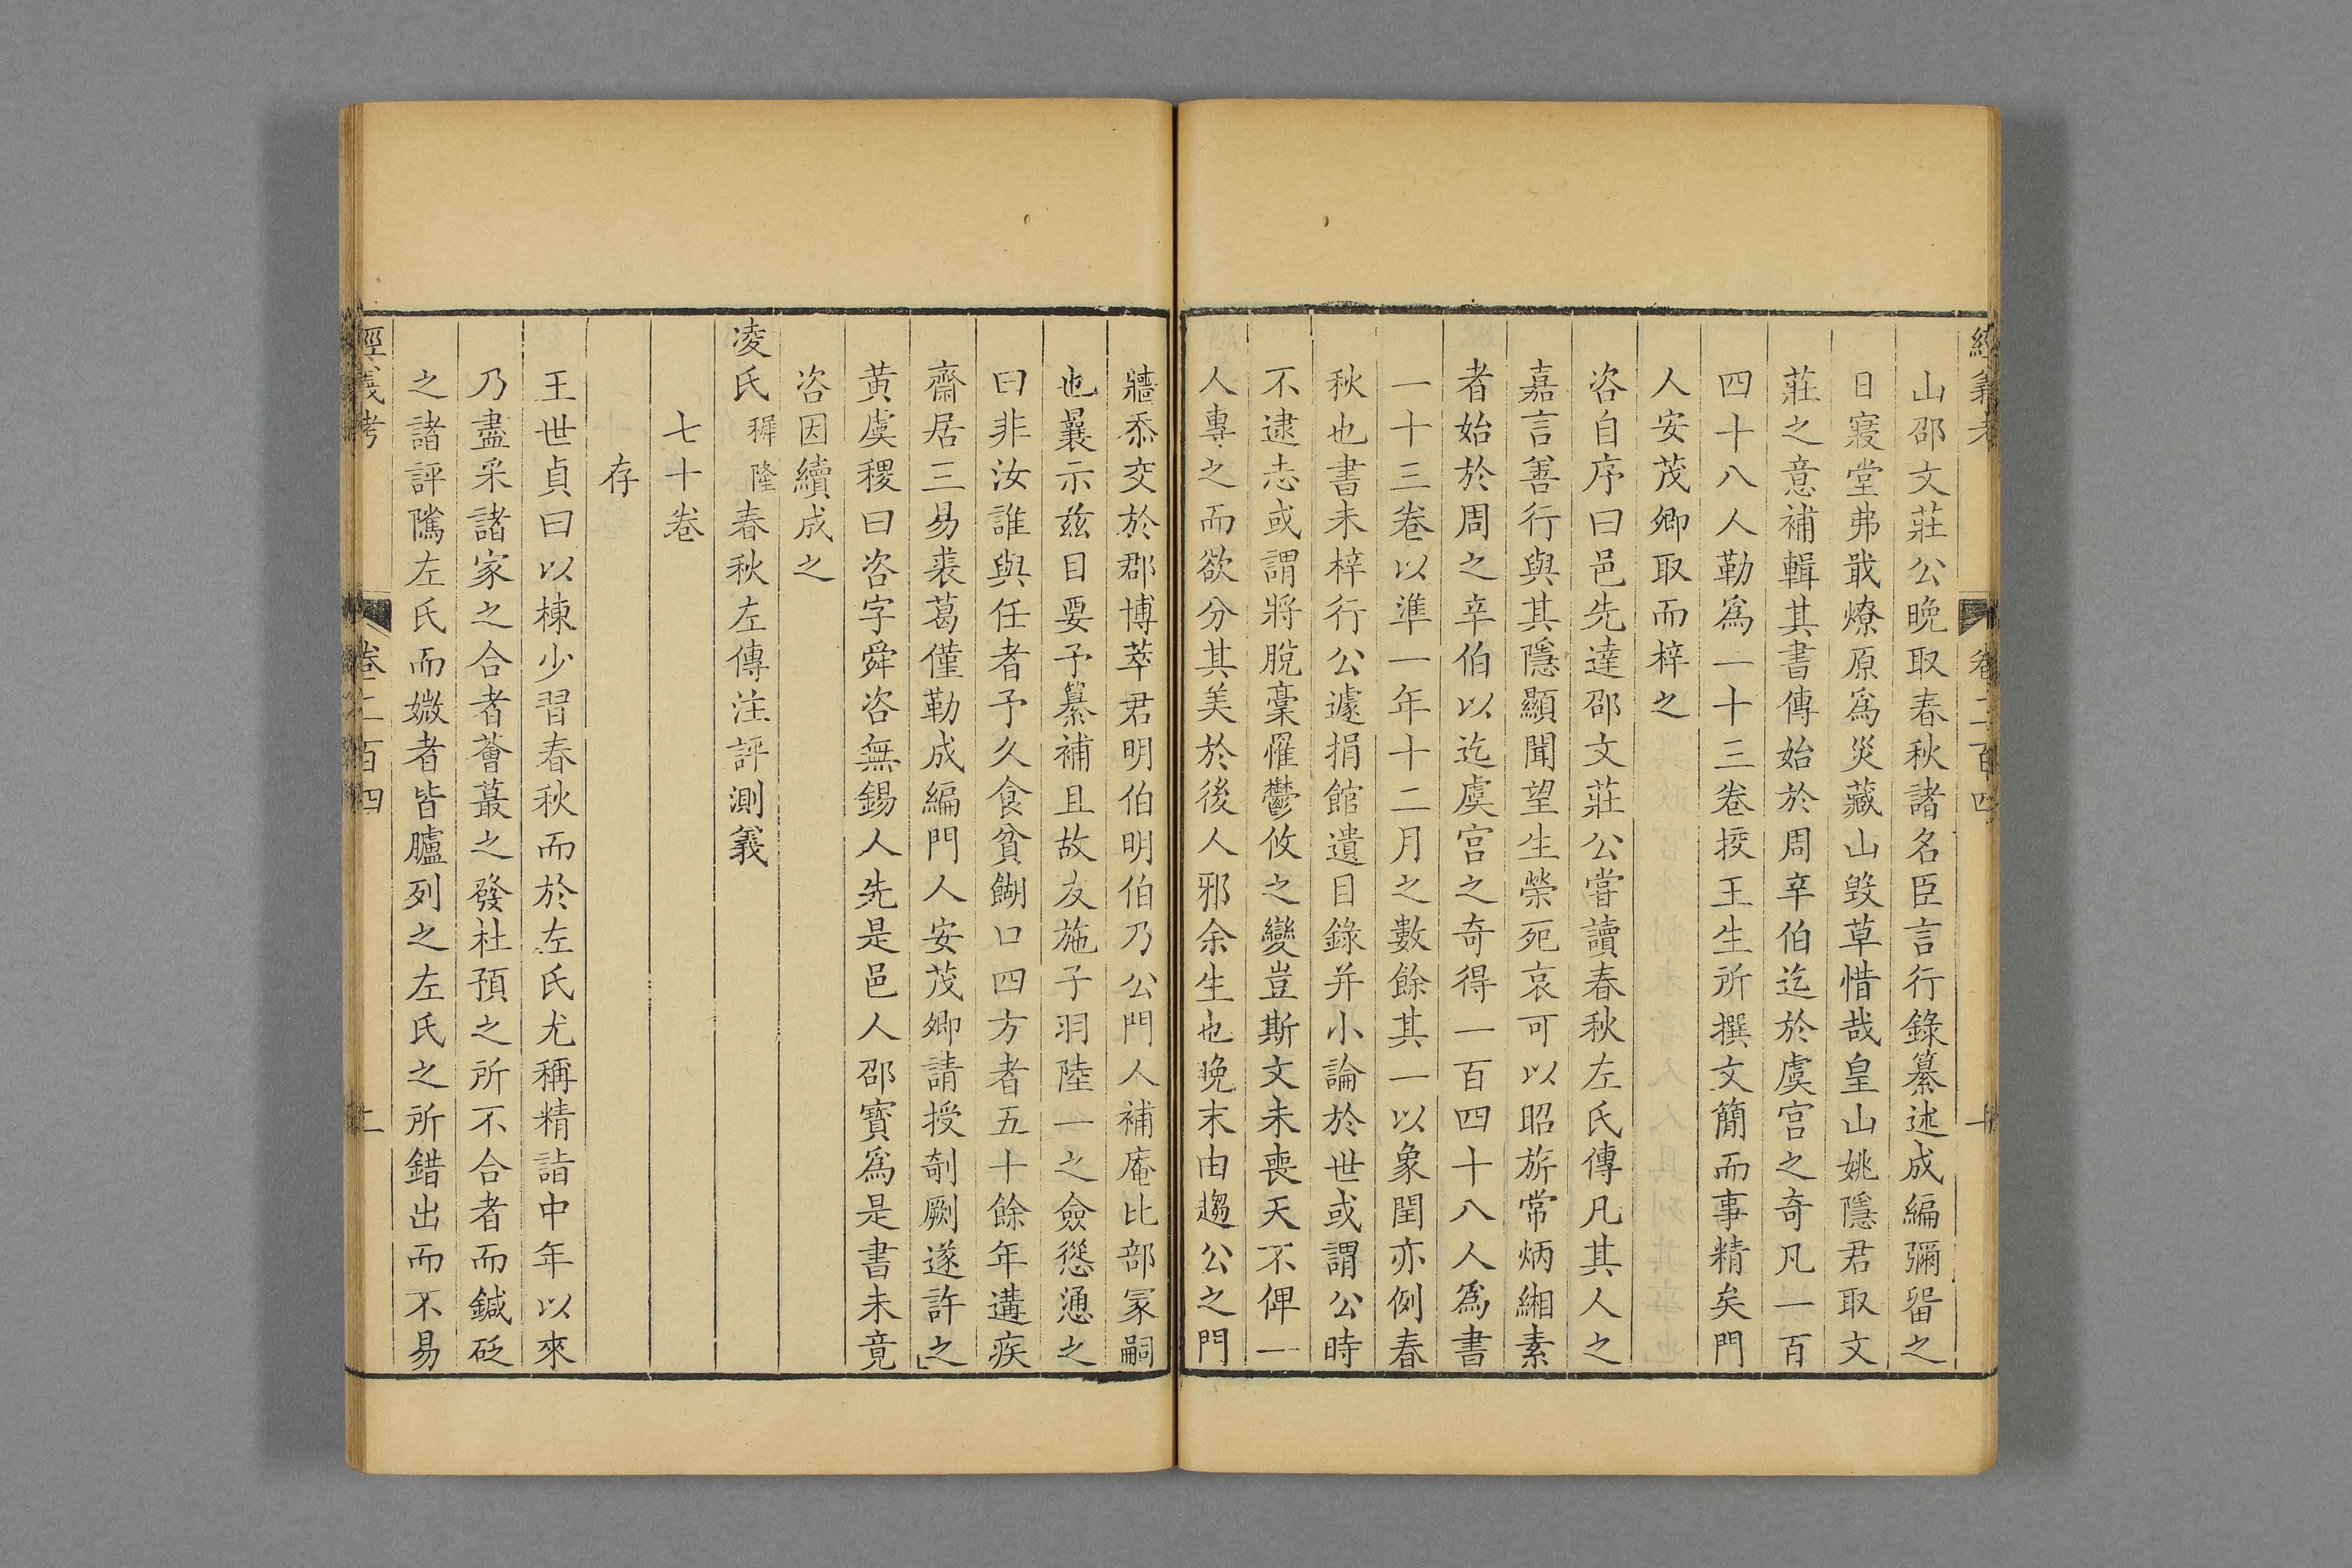 經義考 卷二百四 十
山邵文莊公晚取春秋諸名臣言行錄纂述成編彌留之
日寢堂弗戢燎原爲災藏山毀草惜哉皇山姚隱君取文
莊之意補輯其書傳始於周辛伯迄於虞宮之奇凡一百
四十八人勒爲一十三卷挍王生所撰文簡而事精矣門
人安茂卿取而梓之
咨自序曰邑先達邵文莊公嘗讀春秋左氏傳凡其人之
嘉言善行與其隱顯聞望生榮死哀可以昭旂常炳緗素
者始於周之辛伯以迄虞宮之奇得一百四十八人爲書
一十三卷以準一年十二月之數餘其一以象閏亦例春
秋也書未梓行公遽捐館遺目錄并小論於世或謂公時
不逮志或謂將脫稾罹鬱攸之變豈斯文未喪天不俾一
人專之而欲分其美於後人邪余生也晚末由趨公之門
牆忝交於郡博萃君明伯明伯乃公門人補庵比部冢嗣
也曩示兹目要予纂補且故友施子羽陸一之僉慫慂之
曰非汝誰與任者予久食貧餬口四方者五十餘年遘疾
齋居三易裘葛僅勒成編門人安茂卿請授剞劂遂許之
黃虞稷曰咨字舜咨無錫人先是邑人邵寶爲是書未竟
咨因續成之
凌氏稺隆春秋左傳注評測義
七十卷
存
王世貞曰以棟少習春秋而於左氏尤稱精詣中年以來
乃盡采諸家之合者薈蕞之發杜預之所不合者而鍼砭
之諸評騭左氏而媺者皆臚列之左氏之所錯出而不易
經義考 卷二百四 十